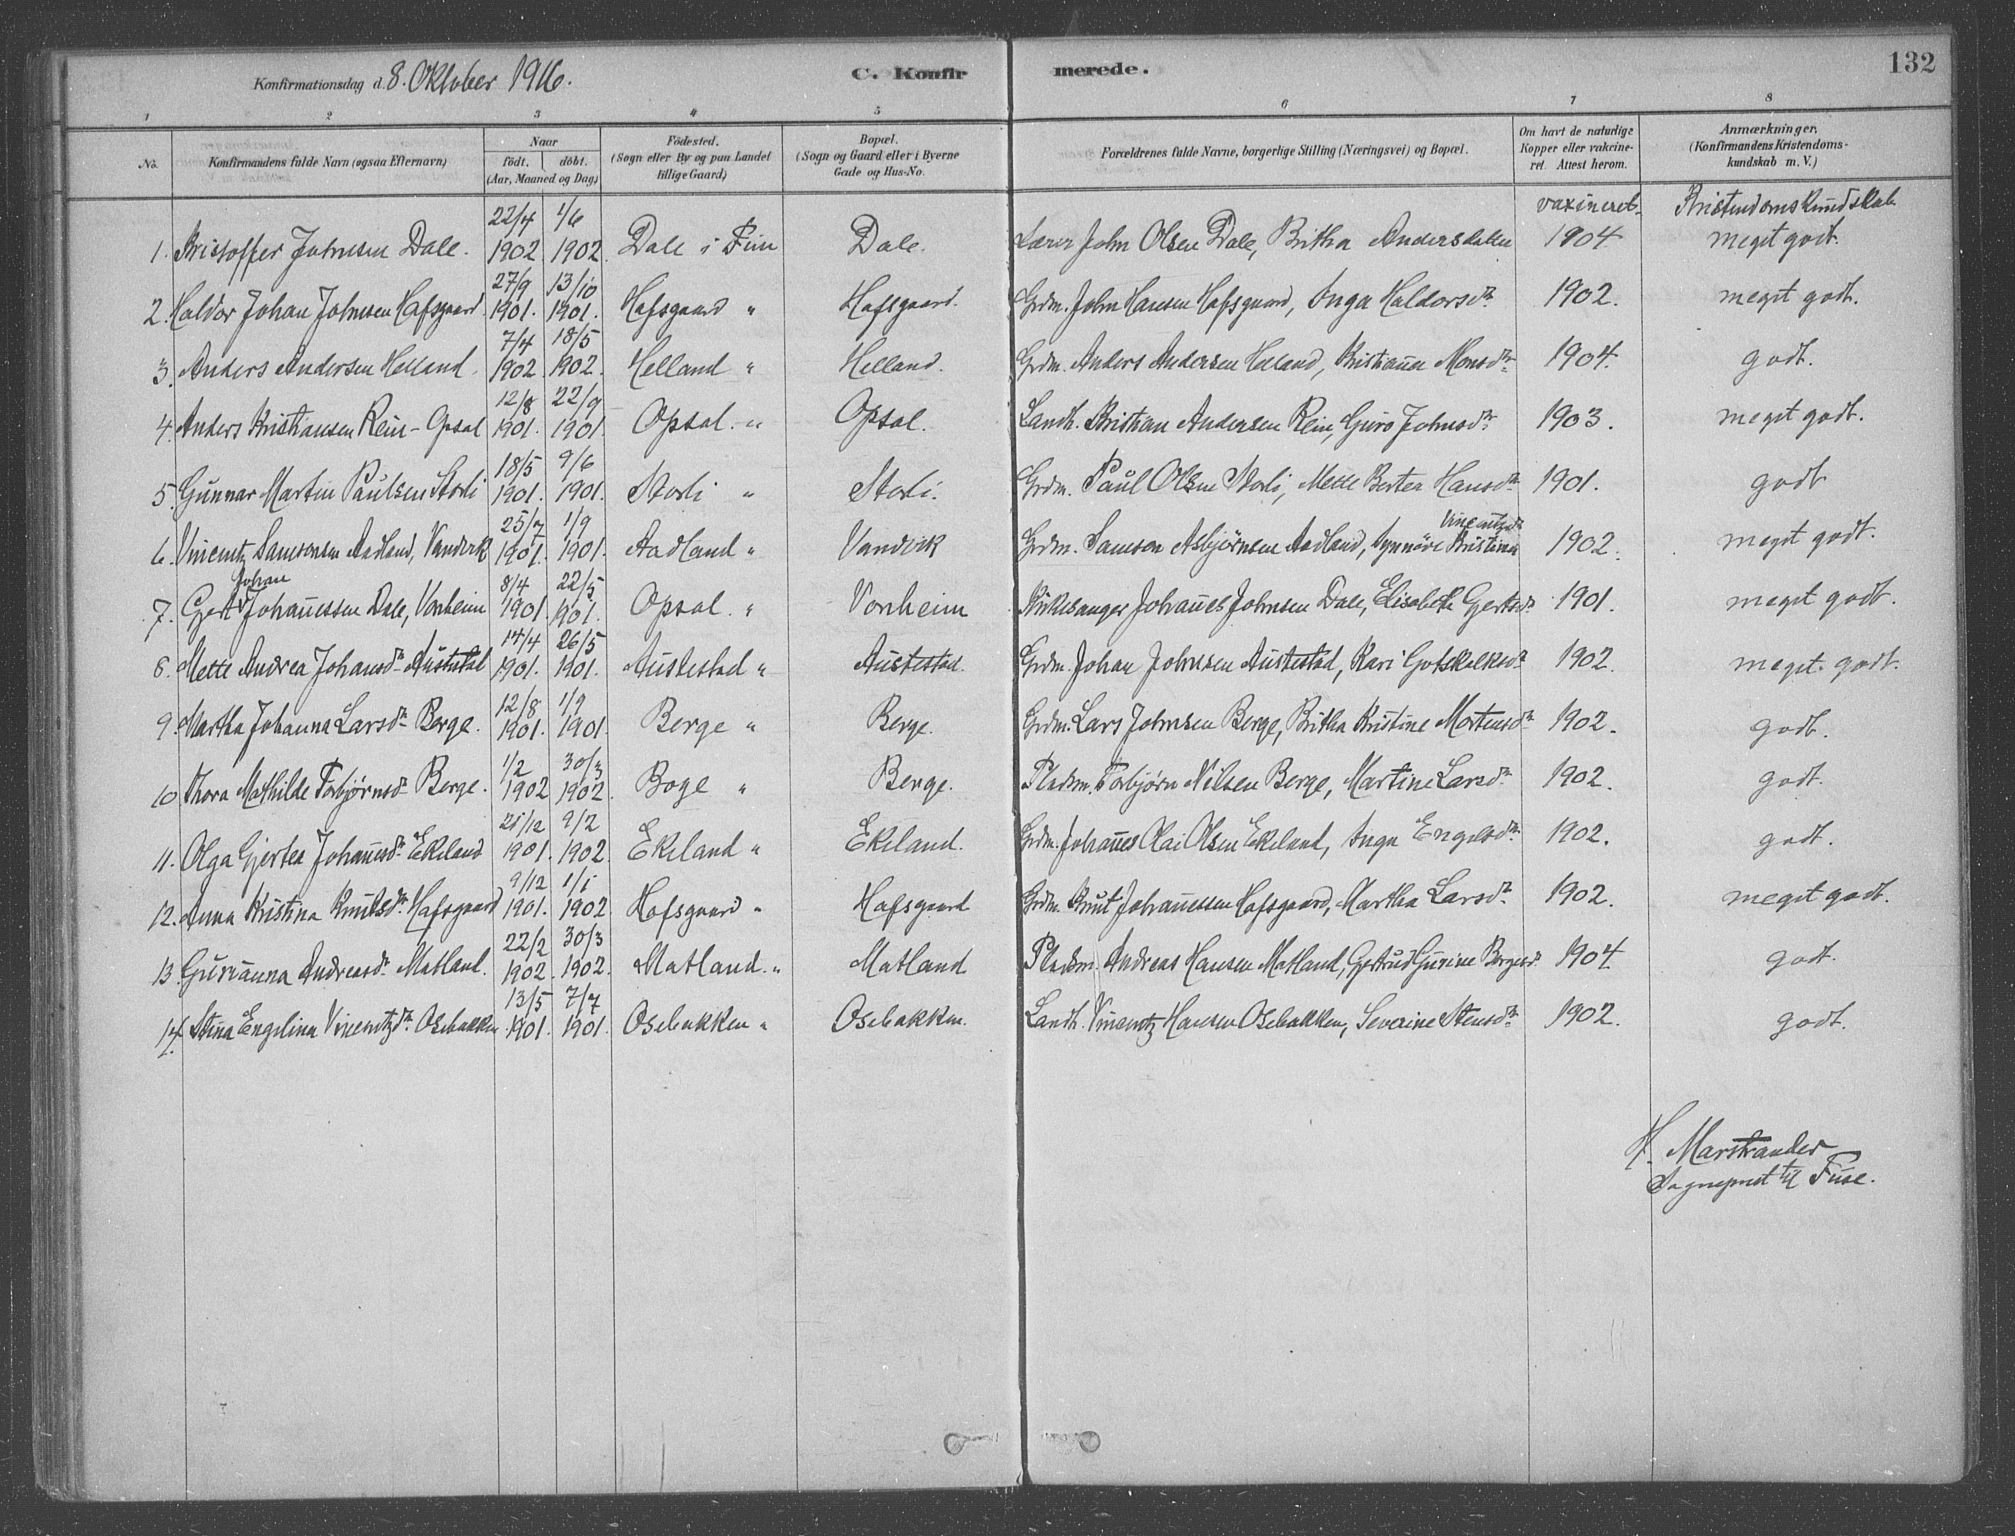 132
Konfirmationsdag d. 8. Oktober 1916. C. Konfirmerede.
1 2 3 4 5 6 7 8
No. Konfirmandens fulde Navn (ogsaa Efternavn) Naar født. døbt. (Aar, Maaned og Dag) Fødested. (Sogn eller By og paa Landet tillige Gaard) Bopæl. (Sogn og Gaard eller i Byerne Gade og Hus-No. Forældrenes fulde Navne, borgerlige Stilling (Næringsvei) og Bopæl. Om havt de naturlige Kopper eller vakcineret. Attest herom. Anmærkninger. (Konfirmandens Kristendomskundskab m. V.)
vaxineret. Kristendomskundskab
1. Kristoffer Johnsen Dale. 22/4 1902 1/6 1902. Dale i Fuse Dale. Lærer John Olsen Dale, Britha Andersdatter 1904 meget godt.
2. Haldor Johan Johnsen Hafsgaard 27/9 1901. 13/10 1901. Hafsgaard " Hafsgaard. Grdm. John Hansen Hafsgaard, Inga Haldorsdr. 1902. meget godt.
3. Anders Andersen Helland 7/4 1902 18/5 1902. Helland " Helland. Grdm. Anders Andersen Helland, Kristianna Monsdr. 1904. godt.
4. Anders Kristiansen Rein - Opsal 12/8 1901. 22/9 1901. Opsal. " Opsal. Landh. Kristian Andersen Rein, Guro Johnsdr. 1903. meget godt.
5. Gunnar Martin Paulsen Storli 18/5 1901. 9/6 1901. Storli " Storli. Grdm. Paul Olsen Storli, Mette Bertea Hansdr. 1901. godt
6. Vincentz Samsonsen Aadland, Vandvik 25/7 1901. 1/9 1901. Aadland " Vandvik Grdm. Samson Asbjørnsen Aadland, Synnøve Kristina Vincentzdr. 1902. meget godt.
7. Gert Johan Johannessen Dale, Vonheim 8/4 1901. 22/5 1901. Opsal. " Vonheim Kirkesanger Johannes Johnsen Dale, Elisabeth Gertsdr. 1901. meget godt.
8. Mette Andrea Johansdr. Austestad 14/4 1901. 26/5 1901. Austestad " Austestad. Grdm. Johan Johnsen Austestad, Kari Gotskalksdr. 1902. meget godt.
9. Martha Johanna Larsdr. Berge. 12/8 1901. 1/9 1901. Berge " Berge. Grdm. Lars Johnsen Berge, Britha Kristine Mortensdr. 1902. godt.
10 Thora Mathilde Torbjørnsdr. Berge. 1/2 1902 30/3 1902. Boge " Berge. Pladsm. Torbjørn Nilsen Berge, Martine Larsdr. 1902. godt.
11. Olga Gjertea Johannsdr. Ekeland 21/12 1901. 9/2 1902. Ekeland " Ekeland. Grdm. Johannes Olai Olsen Ekeland, Inga Engelsdr. 1902. godt.
12. Anna Kristina Knutsdr. Hafsgaard 9/12 1901. 1/1 1902 Hafsgaard " Hafsgaard Grdm. Knut Johannessen Hafsgaard, Martha Larsdr. 1902. meget godt.
13. Gurianna Andreasdr. Matland. 22/2 1902. 30/3 1902. Matland. " Matland Pladsm. Andreas Hansen Matland, Gertrud Gurine Borgesdr. 1904. godt.
14. Stina Engelina Vincentzdr. Osebakken 13/5 1901. 7/7 1901. Osebakken " Osebakken. Landh. Vincentz Hansen Osebakken, Severine Stensdr. 1902. godt.
H. Marstrander
Sogneprest til Fuse.